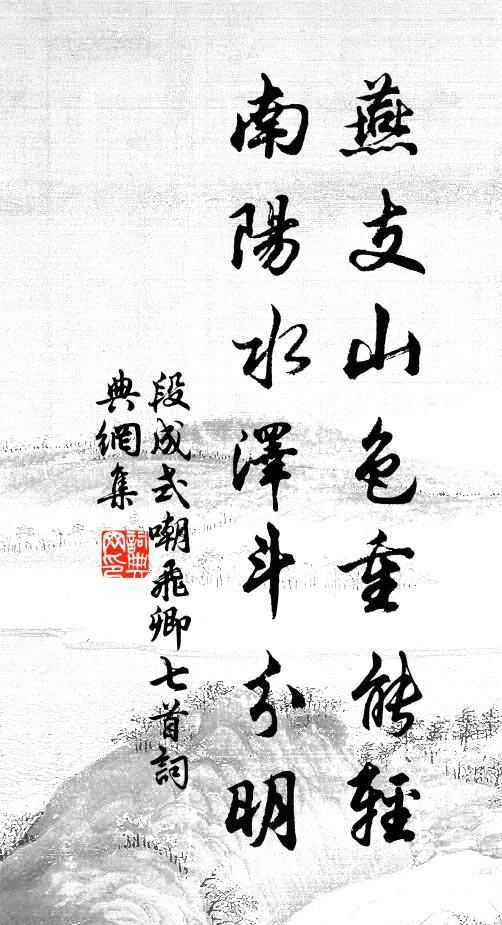 燕支山色重能輕
南陽水澤斗分明
段成式嘲飛卿七首詞
典網集
詞典
网印